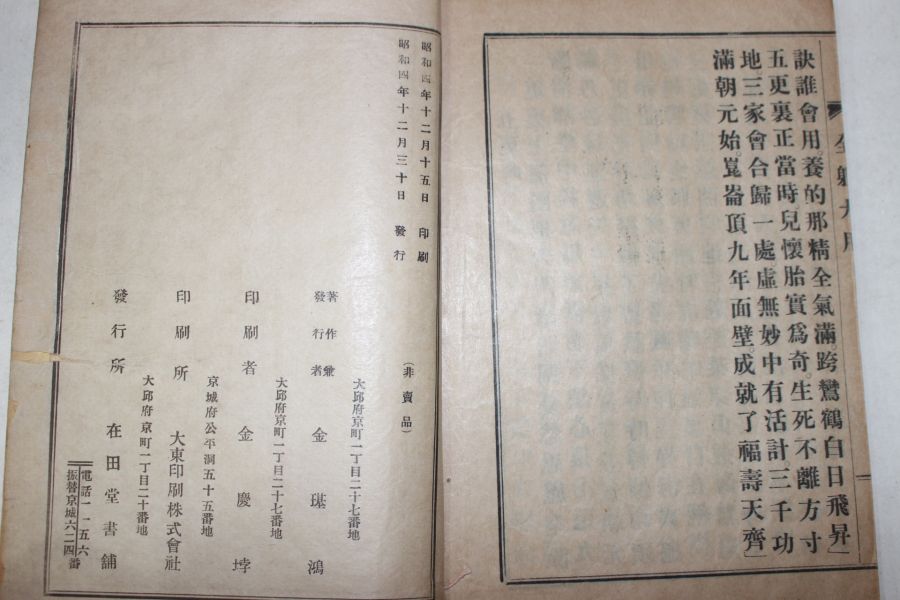 訣誰會用。養的那精全氣滿。跨鸞鶴白日飛昇」
五更裏正當時。兒懷胎實爲奇。生死不離方寸
地。三家會合歸一處。虛無妙中有活計。三千功
滿朝元始。崑崙頂九年面壁。成就了福壽天齊」
昭和四年十二月十五日 印刷
昭和四年十二月三十日 發行
(非賣品)
大邱府京町一丁目二十七番地
著作兼發行者 金琪鴻
大邱府京町一丁目二十七番地
印刷者 金慶㙛
京城府公平洞五十五番地
印刷所 大東印刷株式會社
大邱府京町一丁目二十番地
發行所 在田堂書舖
電話一一五六
振替京城六二四番